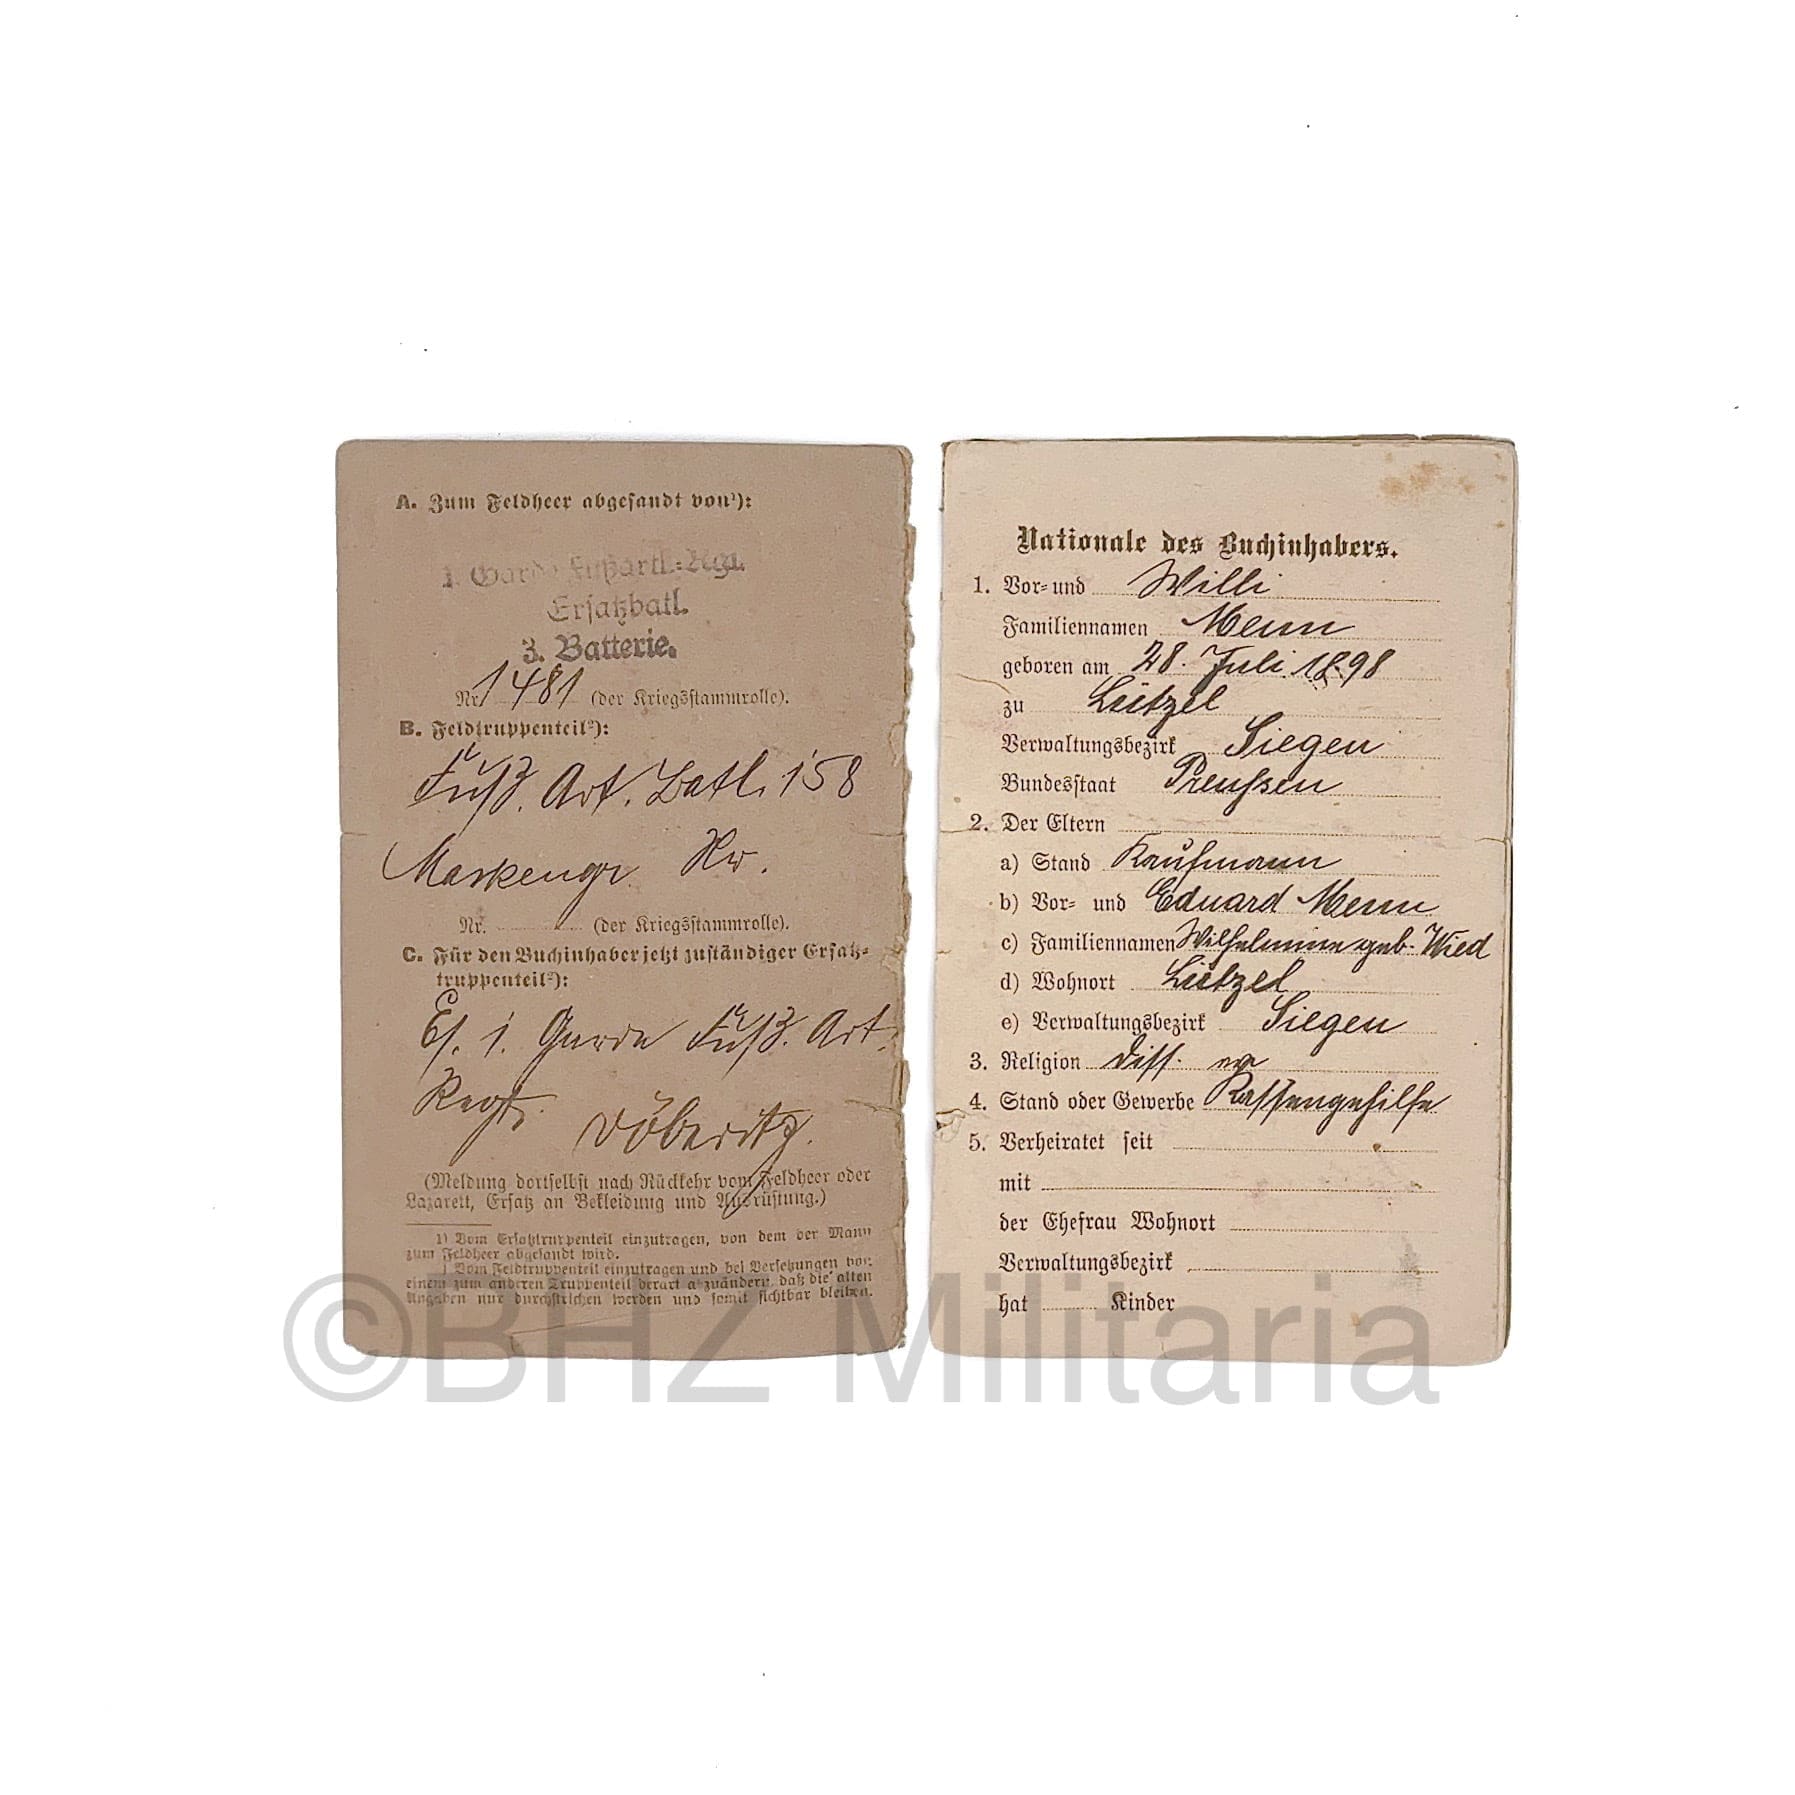 A. Zum Feldheer abgesandt von¹):
1. Garde Fußartl.-Rgt.
Ersatzbatl.
3. Batterie.
Nr. 1481 (der Kriegsstammrolle).
B. Feldtruppenteil²):
Fuß. Art. Batl. 158
Nr. (der Kriegsstammrolle).
C. Für den Buchinhaber jetzt zuständiger Ersatz-
truppenteil²):
1. Garde Fuß. Art.
Regt. Döberitz.
(Meldung dortselbst nach Rückkehr vom Feldheer oder
Lazarett, Ersatz an Bekleidung und Ausrüstung.)
1) Vom Ersatztruppenteil einzutragen, von dem der Mann
zum Feldheer abgesandt wird.
) Vom Feldtruppenteil einzutragen und bei Versetzungen von
einem zum anderen Truppenteil derart abzuändern, daß die alten
Angaben nur durchstrichen werden und somit sichtbar bleiben.
Nationale des Buchinhabers.
1. Vor= und Willi
Familiennamen Menn
geboren am 28. Juli 1898
zu Lützel
Verwaltungsbezirk Siegen
Bundesstaat Preußen
2. Der Eltern
a) Stand Kaufmann
b) Vor= und Eduard Menn
c) Familiennamen Wilhelmine geb. Wied
d) Wohnort Lützel
e) Verwaltungsbezirk Siegen
3. Religion Diss.
4. Stand oder Gewerbe Kassengehilfe
5. Verheiratet seit
mit
der Ehefrau Wohnort
Verwaltungsbezirk
hat Kinder
©BHZ Militaria